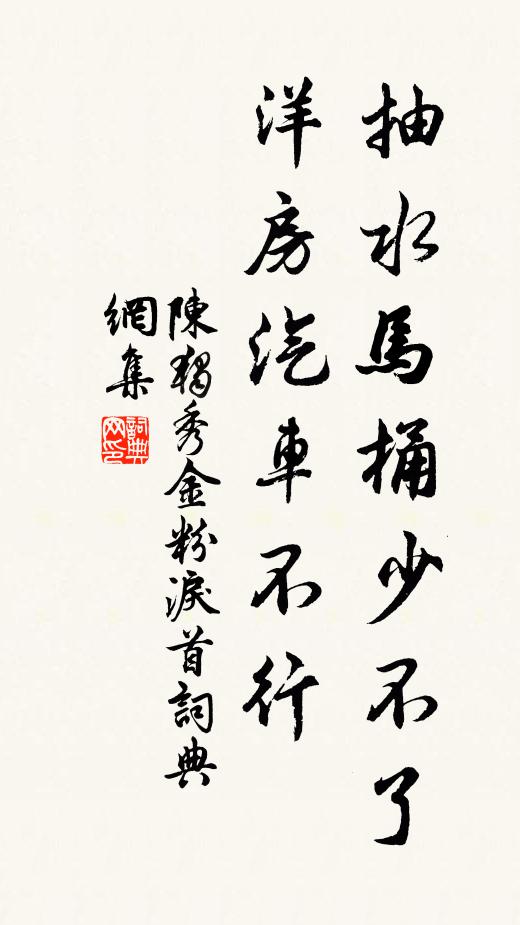 抽水馬桶少不了
洋房汽車不行
陳獨秀金粉淚首詞典
網集
詞典
网印